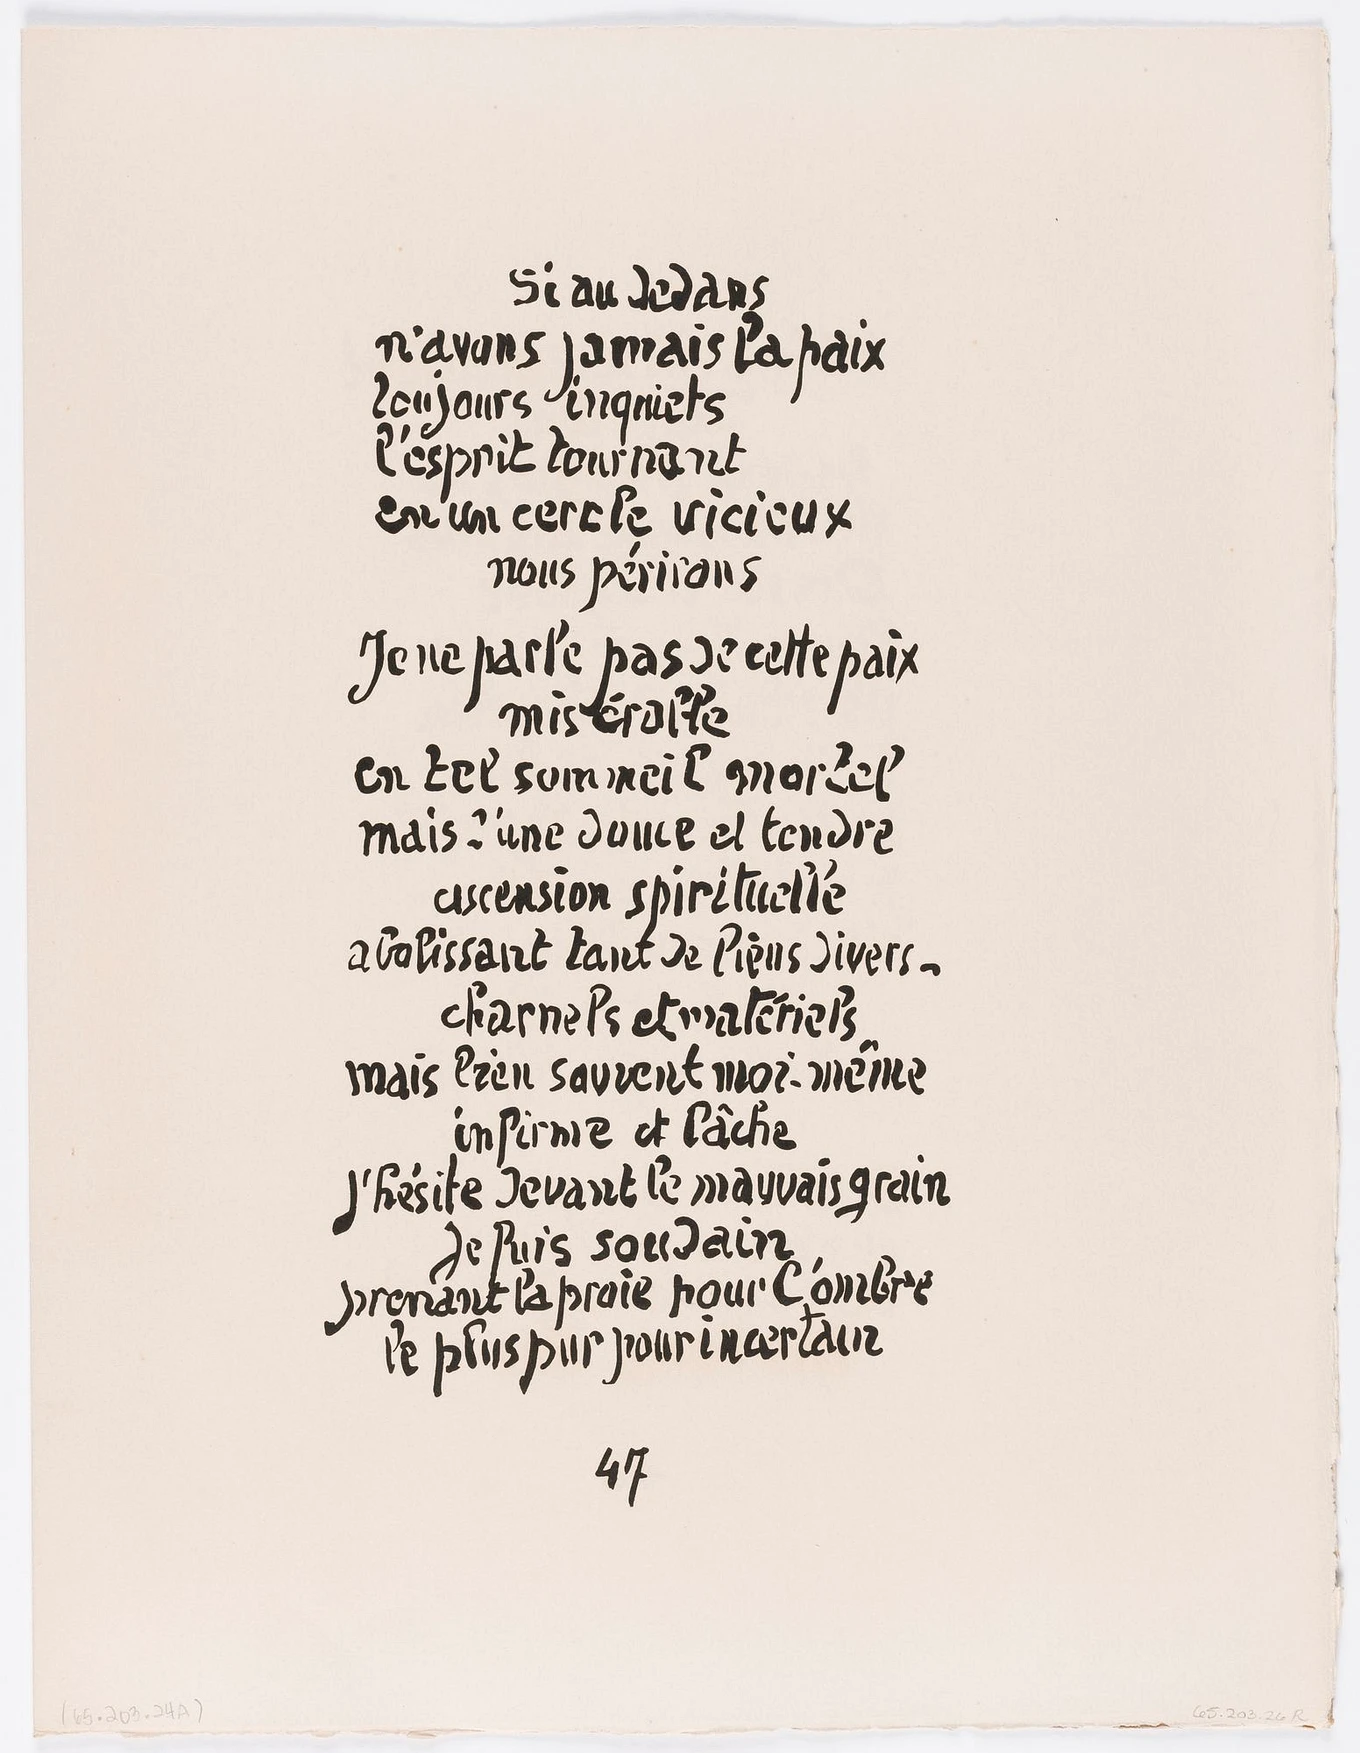 Si au dedans
n'avons jamais la paix
toujours inquiets
l'esprit tournant
en un cercle vicieux
nous périrons
Je ne parle pas de cette paix
misérable
en tel sommeil mortel
mais d'une douce et tendre
ascension spirituelle
abolissant tant de liens divers-
charnels et matériels
mais bien souvent moi-même
infirme et lâche
j'hésite devant le mauvais grain
je fuis soudain
prenant la proie pour l'ombre
le plus pur pour incertain
47
(65.203.24A)
65.203.26R